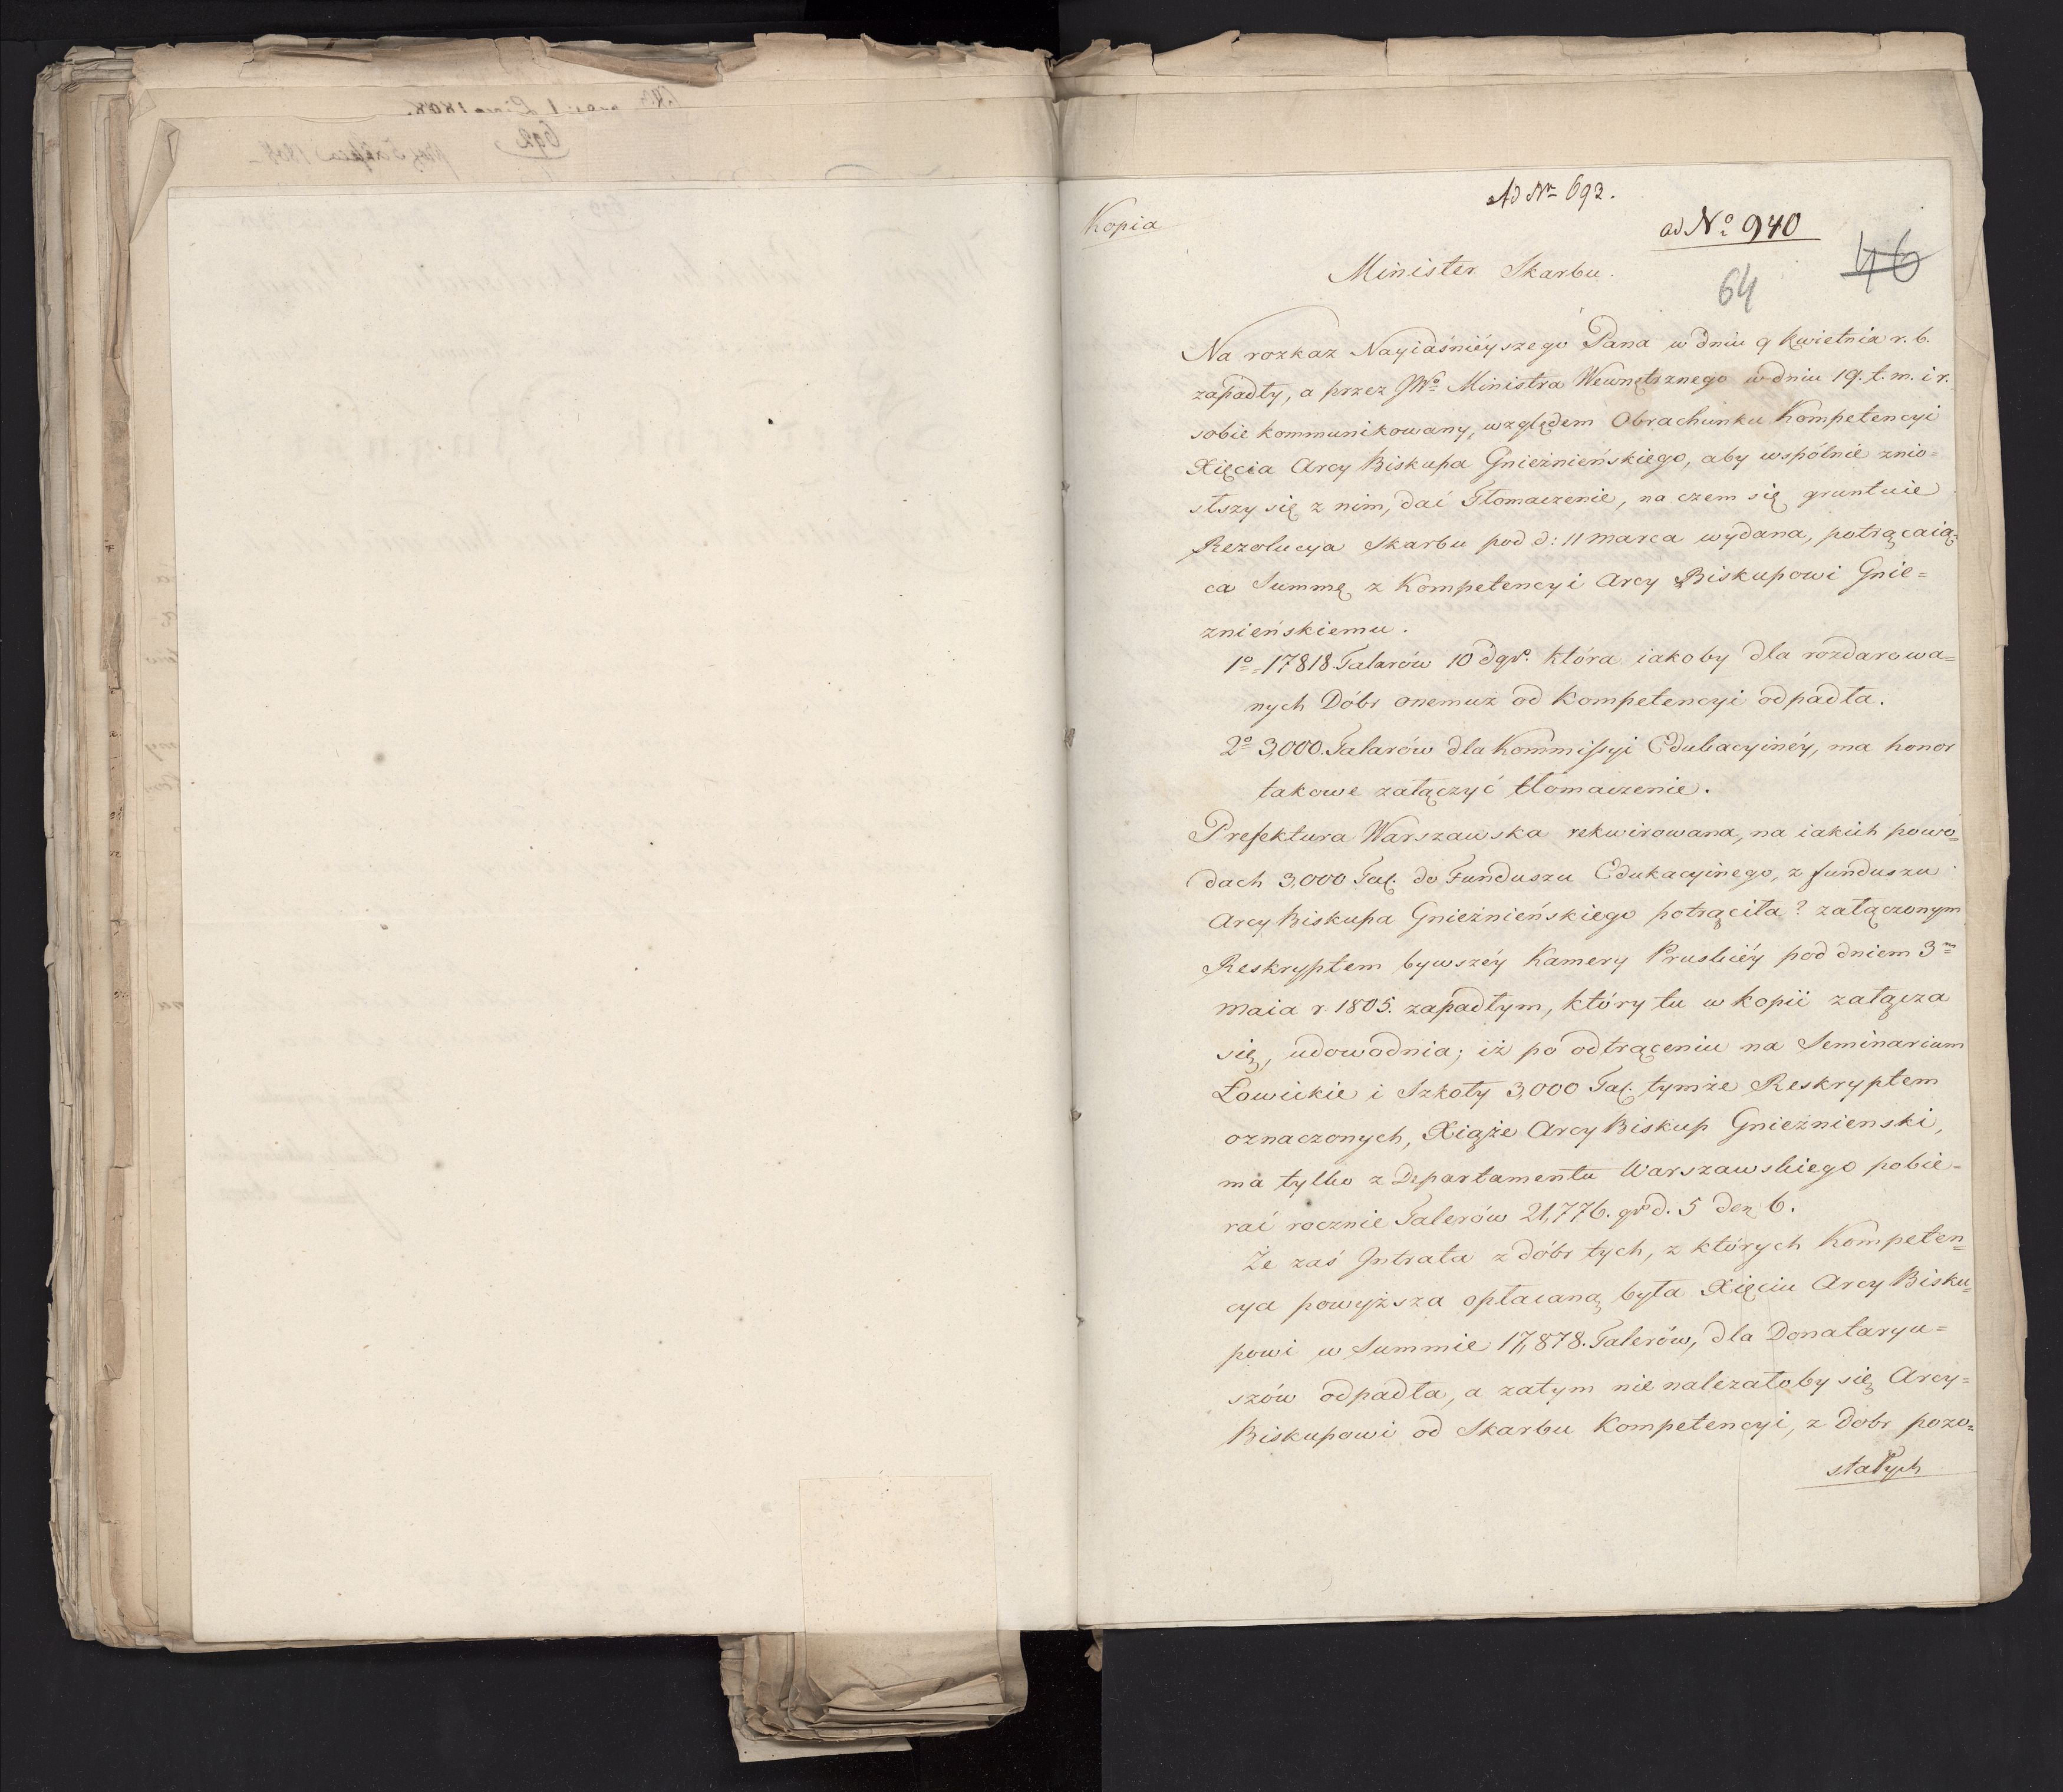 Ad Nr 692.
Kopia
ad No 940
46
64
Minister Skarbu.
Na rozkaz Nayiaśnieyszego Pana w dniu 9 Kwietnia r. b.
zapadły, a przez JWo Ministra Wewnętrznego w dniu 19. t. m. i r.
sobie kommunikowany, względem Obrachunku Kompetencyi
Xięcia Arcy Biskupa Gnieźnieńskiego, aby wspólnie znio=
słszy się z nim, dać Tłomaczenie, na czem się gruntuie
Rezolucya Skarbu pod d: 11 marca wydana, potrącaią=
ca Summę z Kompetencyi Arcy Biskupowi Gnie=
znieńskiemu.
1o 17818. Talarów 10 dgr. która iakoby dla rozdarowa=
nych Dóbr onemuż od Kompetencyi odpadła.
2o 3,000. Talarów dla Kommissyi Edukacyinéy, ma honor
takowe załączyć tłomaczenie.
Prefektura Warszawska rekwirowana, na iakich powo=
dach 3,000 Tal. do Funduszu Edukacyinego, z funduszu
Arcy Biskupa Gnieźnieńskiego potrąciła? załączonym
Reskryptem bywszéy Kamery Pruskiéy pod dniem 3m
maia r. 1805. zapadłym, który tu w kopii załącza
się, udowodnia; iż po odtrąceniu na Seminarium
Łowickie i Szkoły 3,000 Tal. tymże Reskryptem
oznaczonych, Xiąże Arcy Biskup Gnieźnienski,
ma tylko z Departamentu Warszawskiego pobie=
rać rocznie Talerów 21,776. gr d. 5 den 6.
Że zaś Intrata z dóbr tych, z których Kompeten=
cya powyższa opłacaną była Xięciu Arcy Bisku=
powi w Summie 17,878. Talerów, dla Donataryu=
szów odpadła, a zatym nie należałoby się Arcy=
Biskupowi od Skarbu Kompetencyi, z Dobr pozo=
stałych